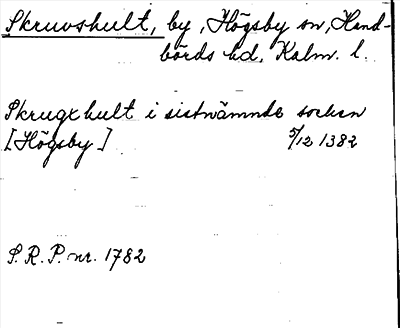 Skruvshult, by, Högsby sn, Hand-
börds hd, Kalm. l.
Skrugxhult i sistnämnde socken
[Högsby] 5/12 1382
S.R.P. nr. 1782